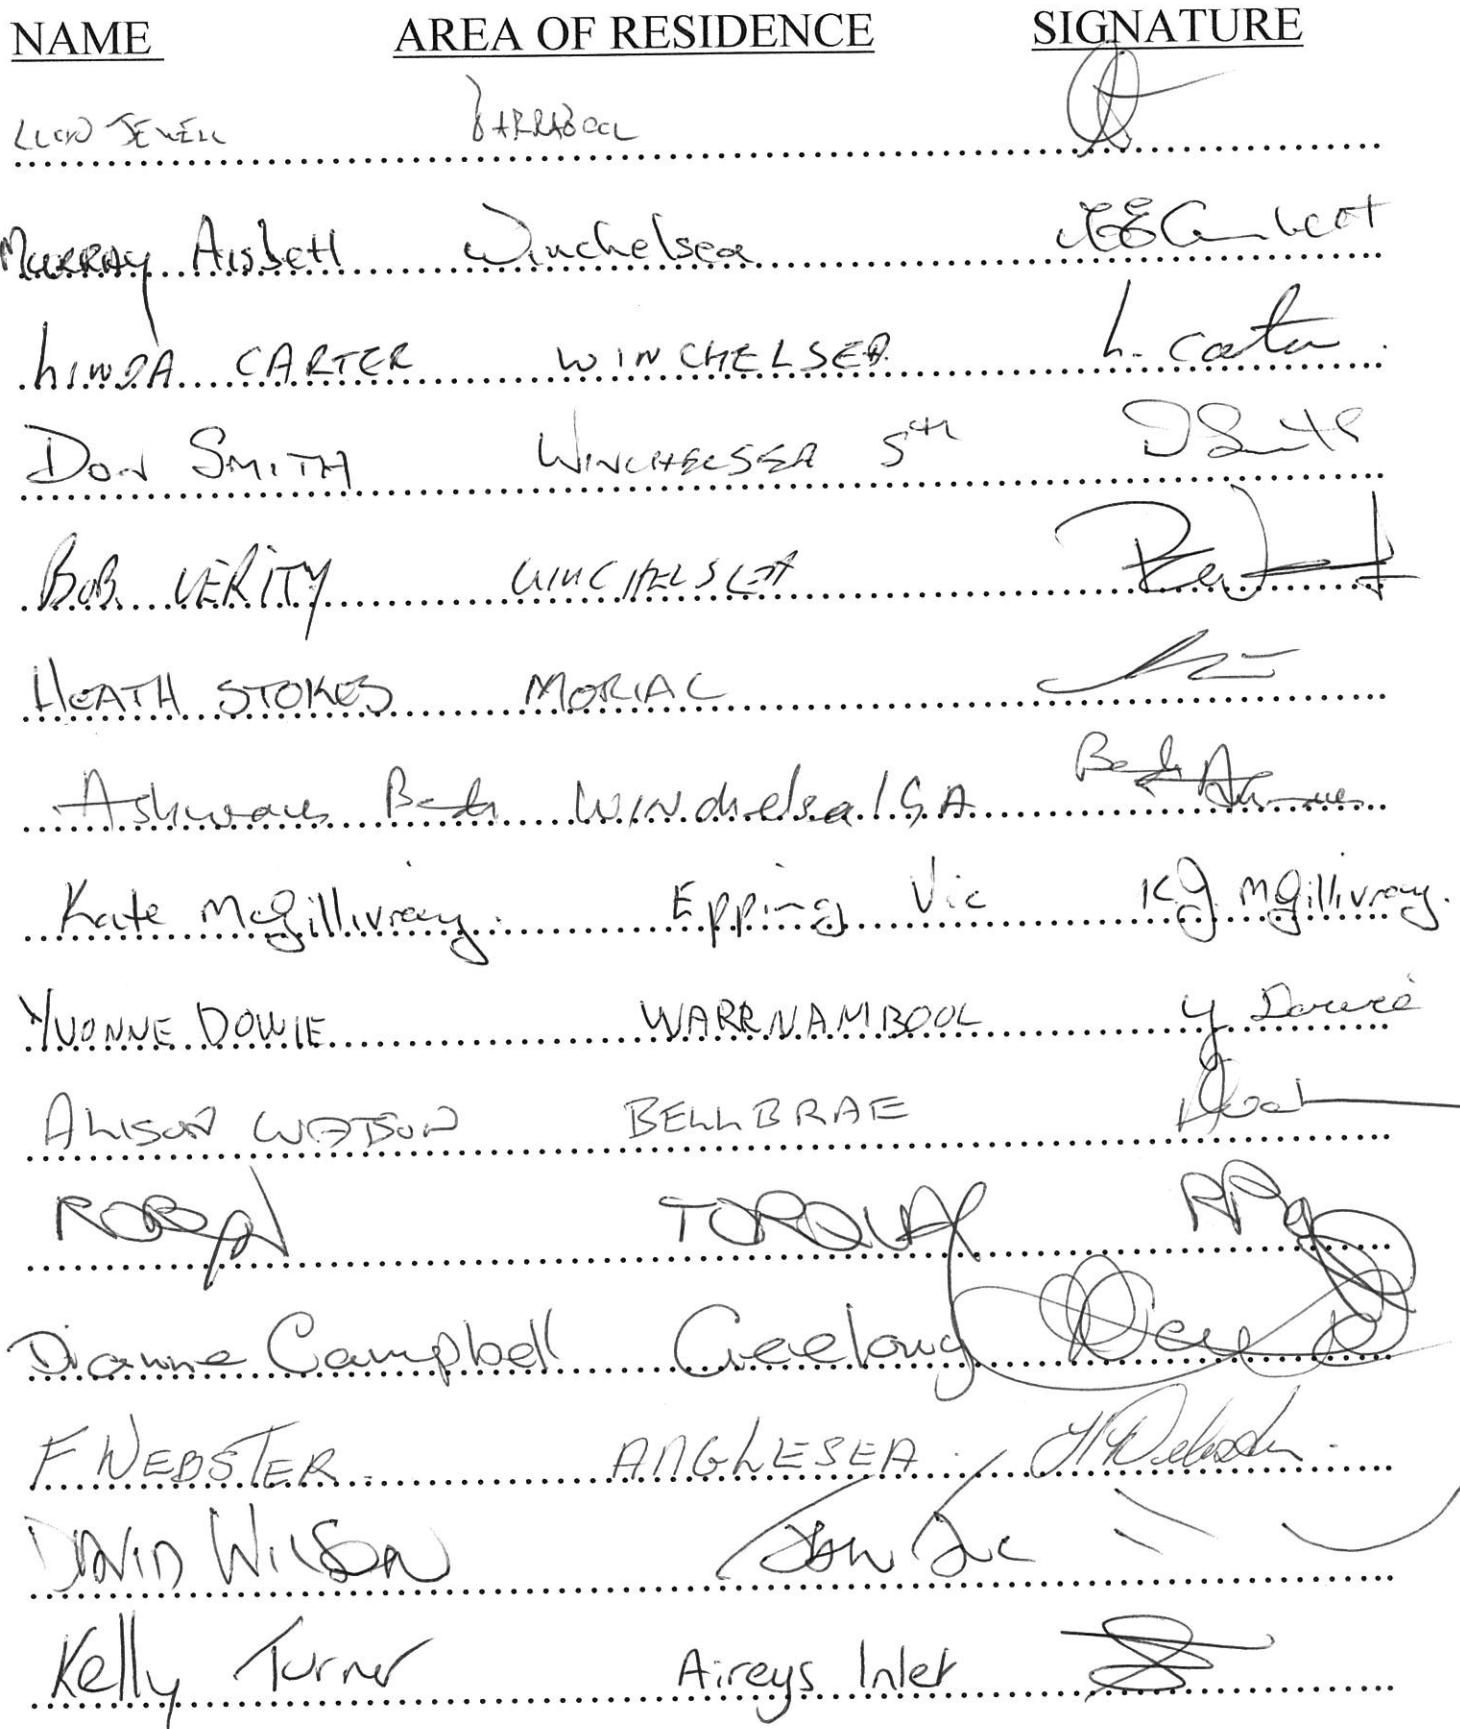 NAME AREA OF RESIDENCE SIGNATURE
JEWELL BARRABOOL
MURRAY Aisbett Winchelsea
LINDA CARTER WINCHELSEA L. Carter
DON SMITH WINCHELSEA 5th D Smith
BOB VERITY WINCHELSEA
HEATH STOKES MORIAC
Beth WINchelsea Beth
Kate McGillivray. Epping Vic K.J. McGillivray.
YVONNE DOWIE WARRNAMBOOL Y Dowie
ALISON WATSON BELLBRAE
ROBYN TORQUAY
Dianne Campbell Geelong
F WEBSTER ANGLESEA
DAVID WILSON
Kelly Turner Aireys Inlet